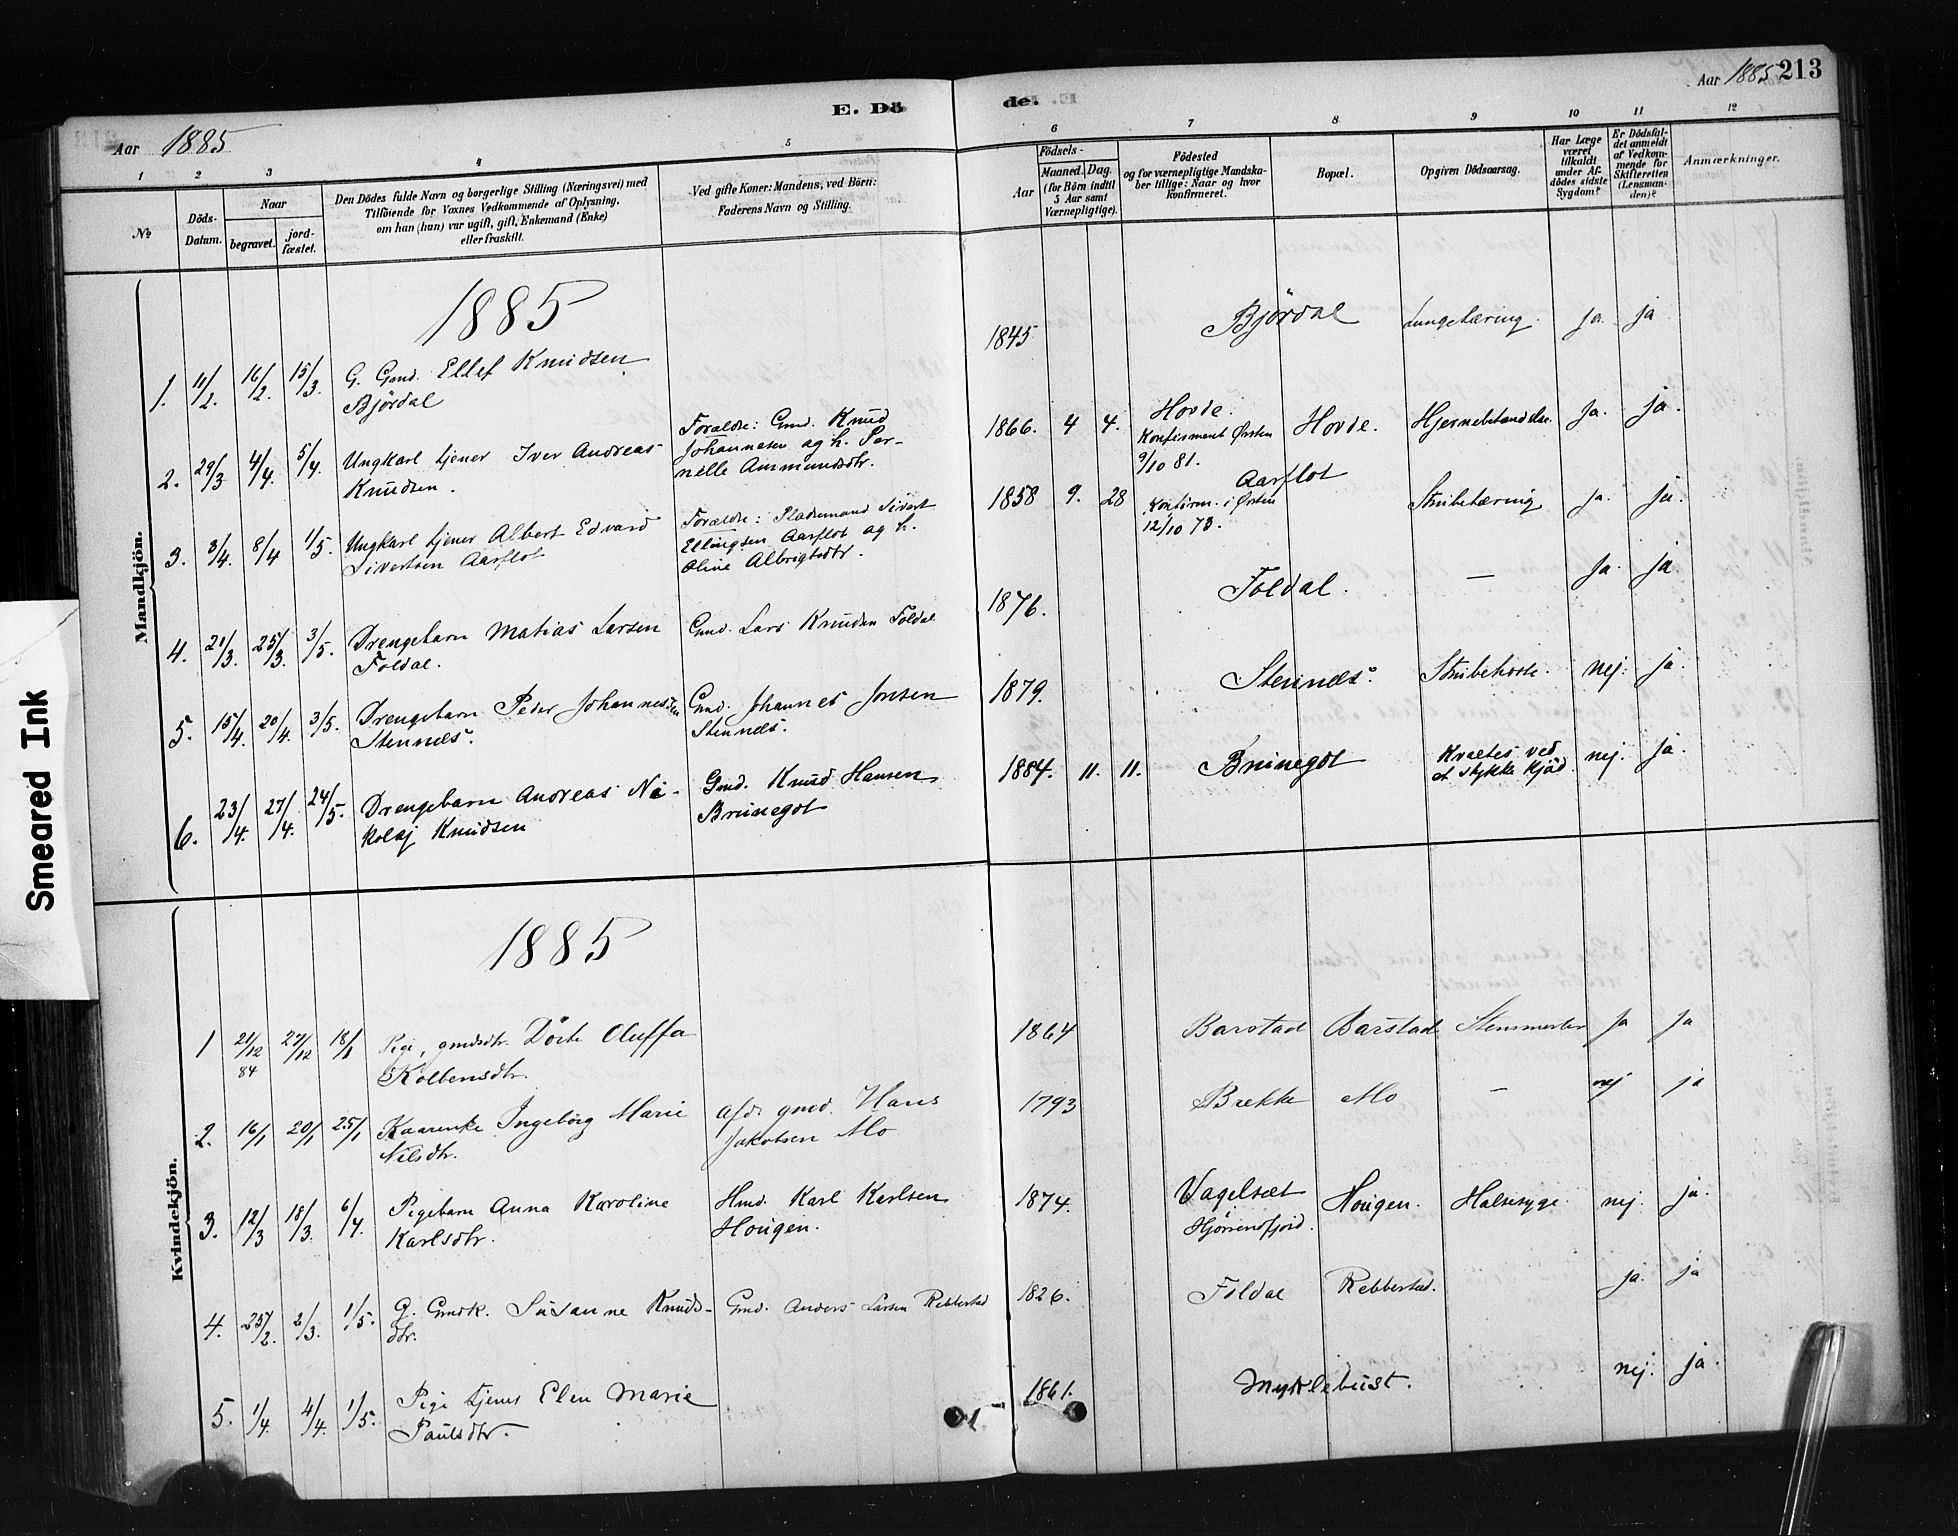 E. Döde.
Aar 1885
Aar 1885 213
1 2 3 4 5 6 7 8 9 10 11 12
№
Döds-Datum.
Naar
begravet.
jord-fæstet.
Den Dödes fulde Navn og borgerlige Stilling (Næringsvei) med
Tilföiende for Voxnes Vedkommende af Oplysning,
om han (hun) var ugift, gift, Enkemand (Enke)
eller fraskilt.
Ved gifte Koner: Mandens, ved Börn:
Faderens Navn og Stilling.
Födsels-
Aar
Maaned. Dag.
(for Börn indtil
5 Aar samt
Værnepligtige).
Födested
og for værnepligtige Mandska-
ber tillige: Naar og hvor
konfirmeret.
Bopæl.
Opgiven Dödsaarsag.
Har Læge
været
tilkaldt
under Af-
dödes sidste
Sygdom?
Er Dödsfal-
det anmeldt
af Vedkom-
mende for
Skifteretten
(Lensman-
den)?
Anmærkninger.
Smeared Ink
Mandkjön.
1885
1. 11/2. 16/2. 15/3. G. Gmd. Ellef Knudsen
Björdal
1845 Björdal Lungetæring. ja. ja
2. 29/3 4/4. 5/4. Ungkarl tjener Iver Andreas
Knudsen.
Forældre: Gmd. Knud
Johannesen og h. Per-
nille Ammundsdtr.
1866. 4 4. Hovde.
Konfirmeret Ørsten
9/10 81.
Hovde. Hjernebetændelse. Ja. ja.
3. 3/4. 8/4 1/5. Ungkarl tjener Albert Edvard
Sivertsen Aarflot
Forældre: Pladsemand Sivert
Ellingsen Aarflot og h.
Oline Albrigtsdtr.
1858 9. 28 Aarflot
Konfirm. i Ørsten
12/10 73.
Strubetæring ja. ja.
4. 21/3. 25/3. 3/5. Drengebarn Matias Larsen
Foldal.
Gmd. Lars Knudsen Foldal
1876. Foldal. — Ja. ja
5. 15/4. 20/4. 3/5. Drengebarn Peder Johannessen
Stennes.
Gmd. Johannes Jonsen
Stennes.
1879. Stennes. Strubehoste. nej. ja.
6. 23/4. 27/4. 24/5. Drengebarn Andreas Ni-
kolaj Knudsen
Gmd. Knud Hansen
Brunegot
1884. 11. 11. Brunegot Kvaltes ved
et stykke kjød. nej. ja.
Kvindekjön.
1885
1 21/12 84 27/12 18/1 Pige, gmdsdtr. Dorte Oluffa
Kolbensdtr.
1864 Barstad Barstad Stensmerter Ja Ja
2. 16/1 20/1 25/1 Kaarenke Ingeborg Marie
Nilsdtr.
Afd. gmd. Hans
Jakobsen Mo
1793 Brekke Mo — nej ja
3. 12/3 18/3. 6/4. Pigebarn Anna Karoline
Karlsdtr.
Hmd. Karl Karlsen
Hougen.
1874. Vagelsæt
Hjørrendfjord.
Hougen. Halssyge. nej. ja.
4. 25/2. 2/3. 1/5. G. Gmdk. Susanne Knuds-
dtr.
Gmd. Anders Larsen Rebbestad
1826. Foldal Rebbestad. ja. ja
5. 1/4. 4/4. 1/5. Pige tjener Elen Marie
Paulsdtr.
1861. Myklebust. nej. ja.